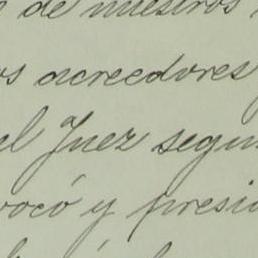 de nuestros
os acreedores
el Juez segun
vocó y presi